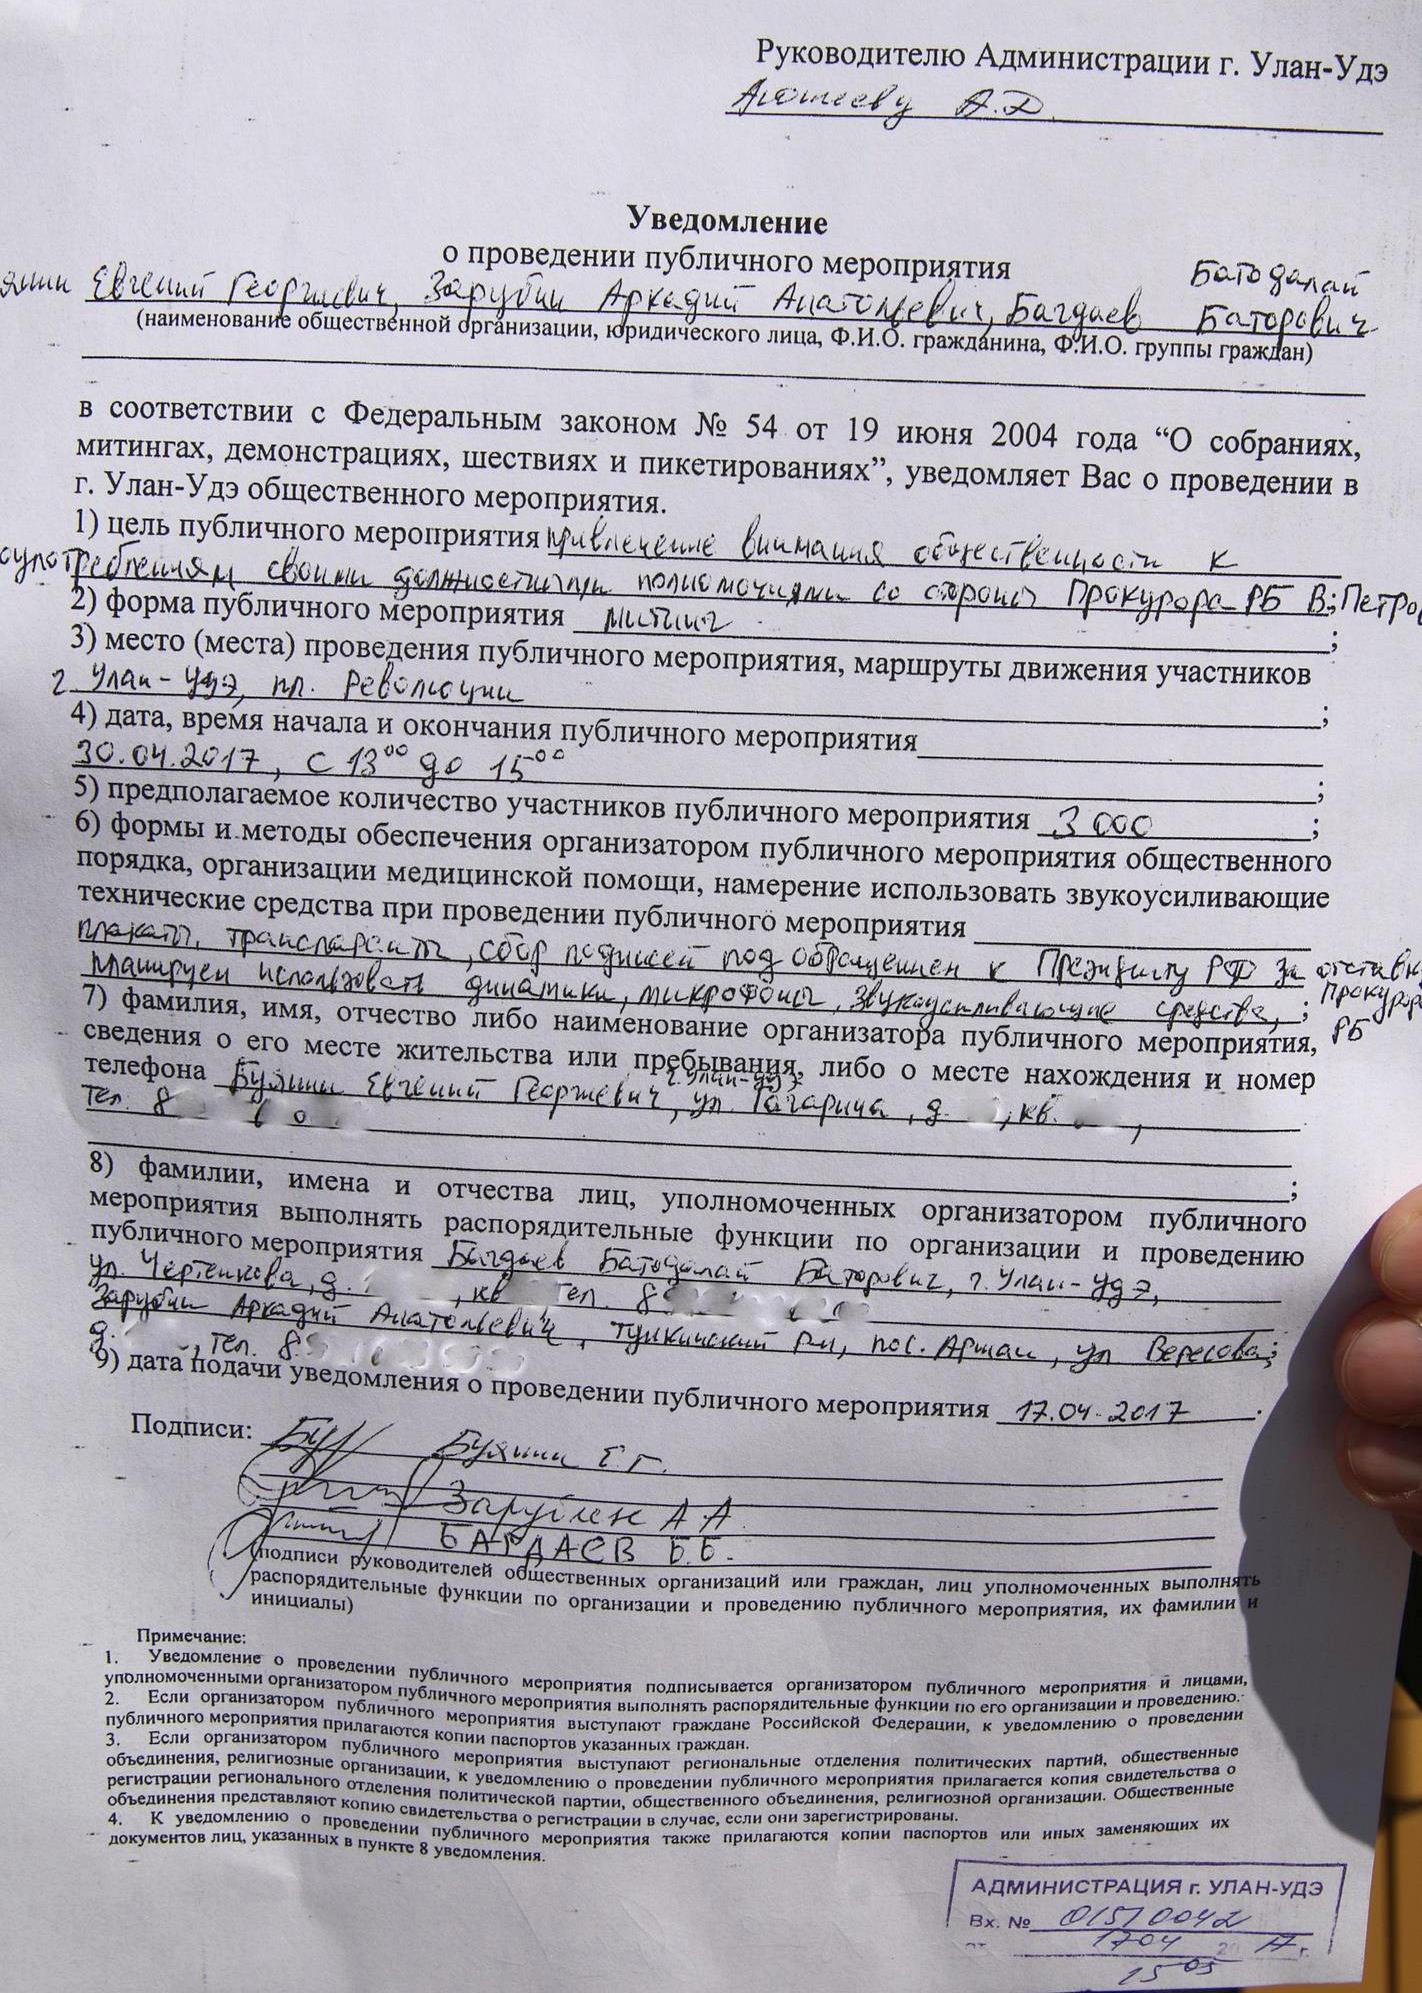 Руководителю Администрации г. Улан-Удэ
А.Д.
Уведомление
о проведении публичного мероприятия
Батодалай
Евгений Георгиевич, Зарубин Аркадий Анатольевич, Багдаев Баторович
(наименование общественной организации, юридического лица, Ф.И.О. гражданина, Ф.И.О. группы граждан)
в соответствии с Федеральным законом № 54 от 19 июня 2004 года “О собраниях,
митингах, демонстрациях, шествиях и пикетированиях”, уведомляет Вас о проведении в
г. Улан-Удэ общественного мероприятия.
1) цель публичного мероприятия привлечение внимания общественности к
своими должностными полномочиями со стороны Прокурора РБ В. Петров
2) форма публичного мероприятия митинг ;
3) место (места) проведения публичного мероприятия, маршруты движения участников
г. Улан-Удэ, пл. Революции ;
4) дата, время начала и окончания публичного мероприятия
30.04.2017, с 13 00 до 15 00 ;
5) предполагаемое количество участников публичного мероприятия 3 000 ;
6) формы и методы обеспечения организатором публичного мероприятия общественного
порядка, организации медицинской помощи, намерение использовать звукоусиливающие
технические средства при проведении публичного мероприятия
плакаты, транспаранты, сбор подписей под обращением к Президенту РФ за отставку
планируем использовать динамики, микрофоны, звукоусиливающие средства, ; Прокурора
РБ
7) фамилия, имя, отчество либо наименование организатора публичного мероприятия,
сведения о его месте жительства или пребывания, либо о месте нахождения и номер
телефона Буянин Евгений Георгиевич, г. Улан-Удэ ул. Гагарина, д. , кв. ,
тел. 8
;
8) фамилии, имена и отчества лиц, уполномоченных организатором публичного
мероприятия выполнять распорядительные функции по организации и проведению
публичного мероприятия Багдаев Батодалай Баторович, г. Улан-Удэ,
ул. Чертенкова, д. , кв тел. 8
Зарубин Аркадий Анатольевич, Тункинский р-н, пос. Аршан, ул Вересова;
д. , тел. 8
9) дата подачи уведомления о проведении публичного мероприятия 17.04.2017 .
Подписи: Буянин Е.Г.
Зарубин А А
БАГДАЕВ Б.Б.
(подписи руководителей общественных организаций или граждан, лиц уполномоченных выполнять
распорядительные функции по организации и проведению публичного мероприятия, их фамилии и
инициалы)
Примечание:
1. Уведомление о проведении публичного мероприятия подписывается организатором публичного мероприятия и лицами,
уполномоченными организатором публичного мероприятия выполнять распорядительные функции по его организации и проведению.
2. Если организатором публичного мероприятия выступают граждане Российской Федерации, к уведомлению о проведении
публичного мероприятия прилагаются копии паспортов указанных граждан.
3. Если организатором публичного мероприятия выступают региональные отделения политических партий, общественные
объединения, религиозные организации, к уведомлению о проведении публичного мероприятия прилагается копия свидетельства о
регистрации регионального отделения политической партии, общественного объединения, религиозной организации. Общественные
объединения представляют копию свидетельства о регистрации в случае, если они зарегистрированы.
4. К уведомлению о проведении публичного мероприятия также прилагаются копии паспортов или иных заменяющих их
документов лиц, указанных в пункте 8 уведомления.
АДМИНИСТРАЦИЯ г. УЛАН-УДЭ
Вх. №
от 1704 20 17 г.
15 05